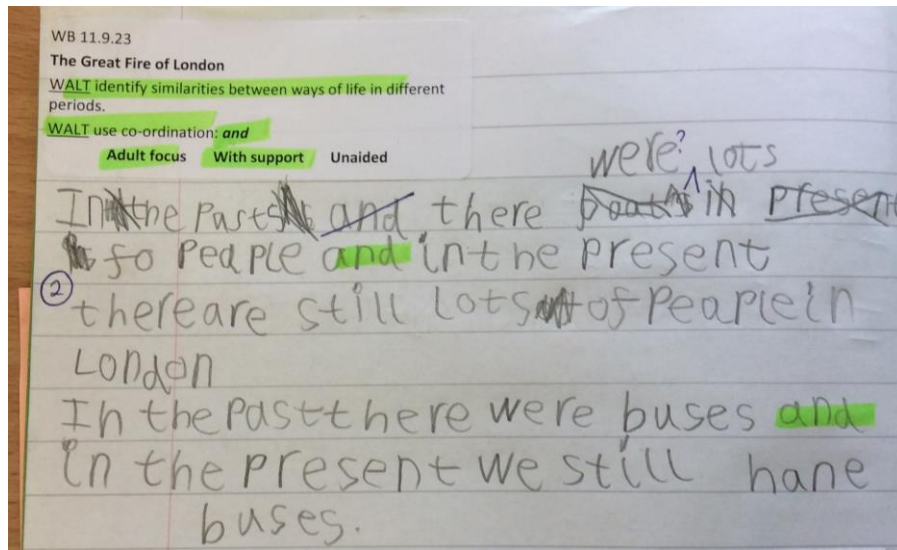 WB 11.9.23
The Great Fire of London
WALT identify similarities between ways of life in different
periods.
WALT use co-ordination: and
Adult focus With support Unaided
were? lots
In the past and there in present
fo peaple and in the present
2
there are still lots of peaple in
London
In the past there were buses and
in the present we still hane
buses.